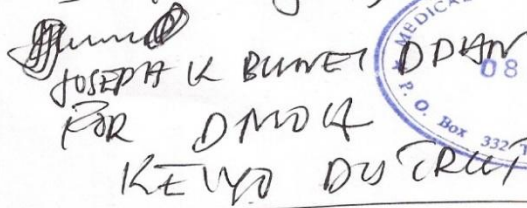 JOSEPH K DDHAN
FOR DMOH
KEIYO DISTRICT
MEDICAL
08
P. O. Box 332